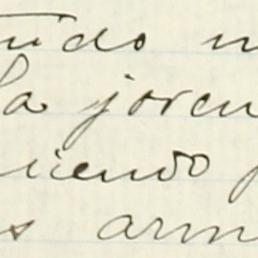 nido
La joven
iendo
s arm